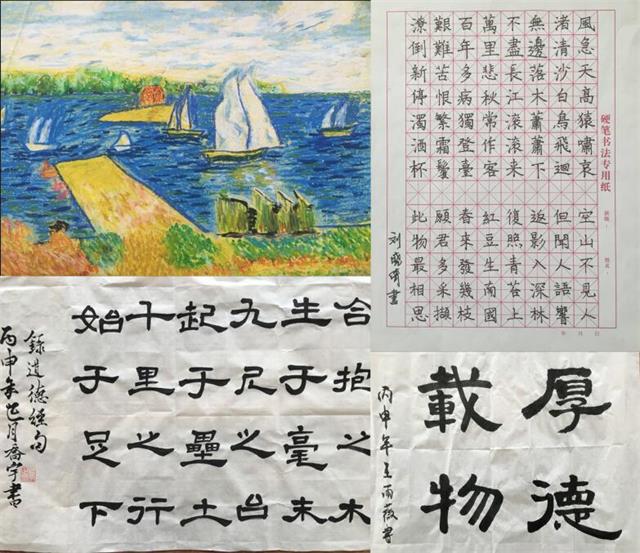 硬笔书法专用纸
班级：
姓名：
年 月 日
風急天高猿嘯哀 空山不見人
渚清沙白鳥飛迴 但聞人語響
無邊落木蕭蕭下 返影入深林
不盡長江滾滾来 復照青苔上
萬里悲秋常作客 紅豆生南國
百年多病獨登臺 春來發幾枝
艱難苦恨繁霜鬢 願君多采擷
潦倒新停濁酒杯 此物最相思
刘晓 書
合抱之木
生于毫末
九尺之台
起于壘土
千里之行
始于足下
錄道德經句
丙申年 月喬宇書
厚德
載物
丙申年王雨薇書